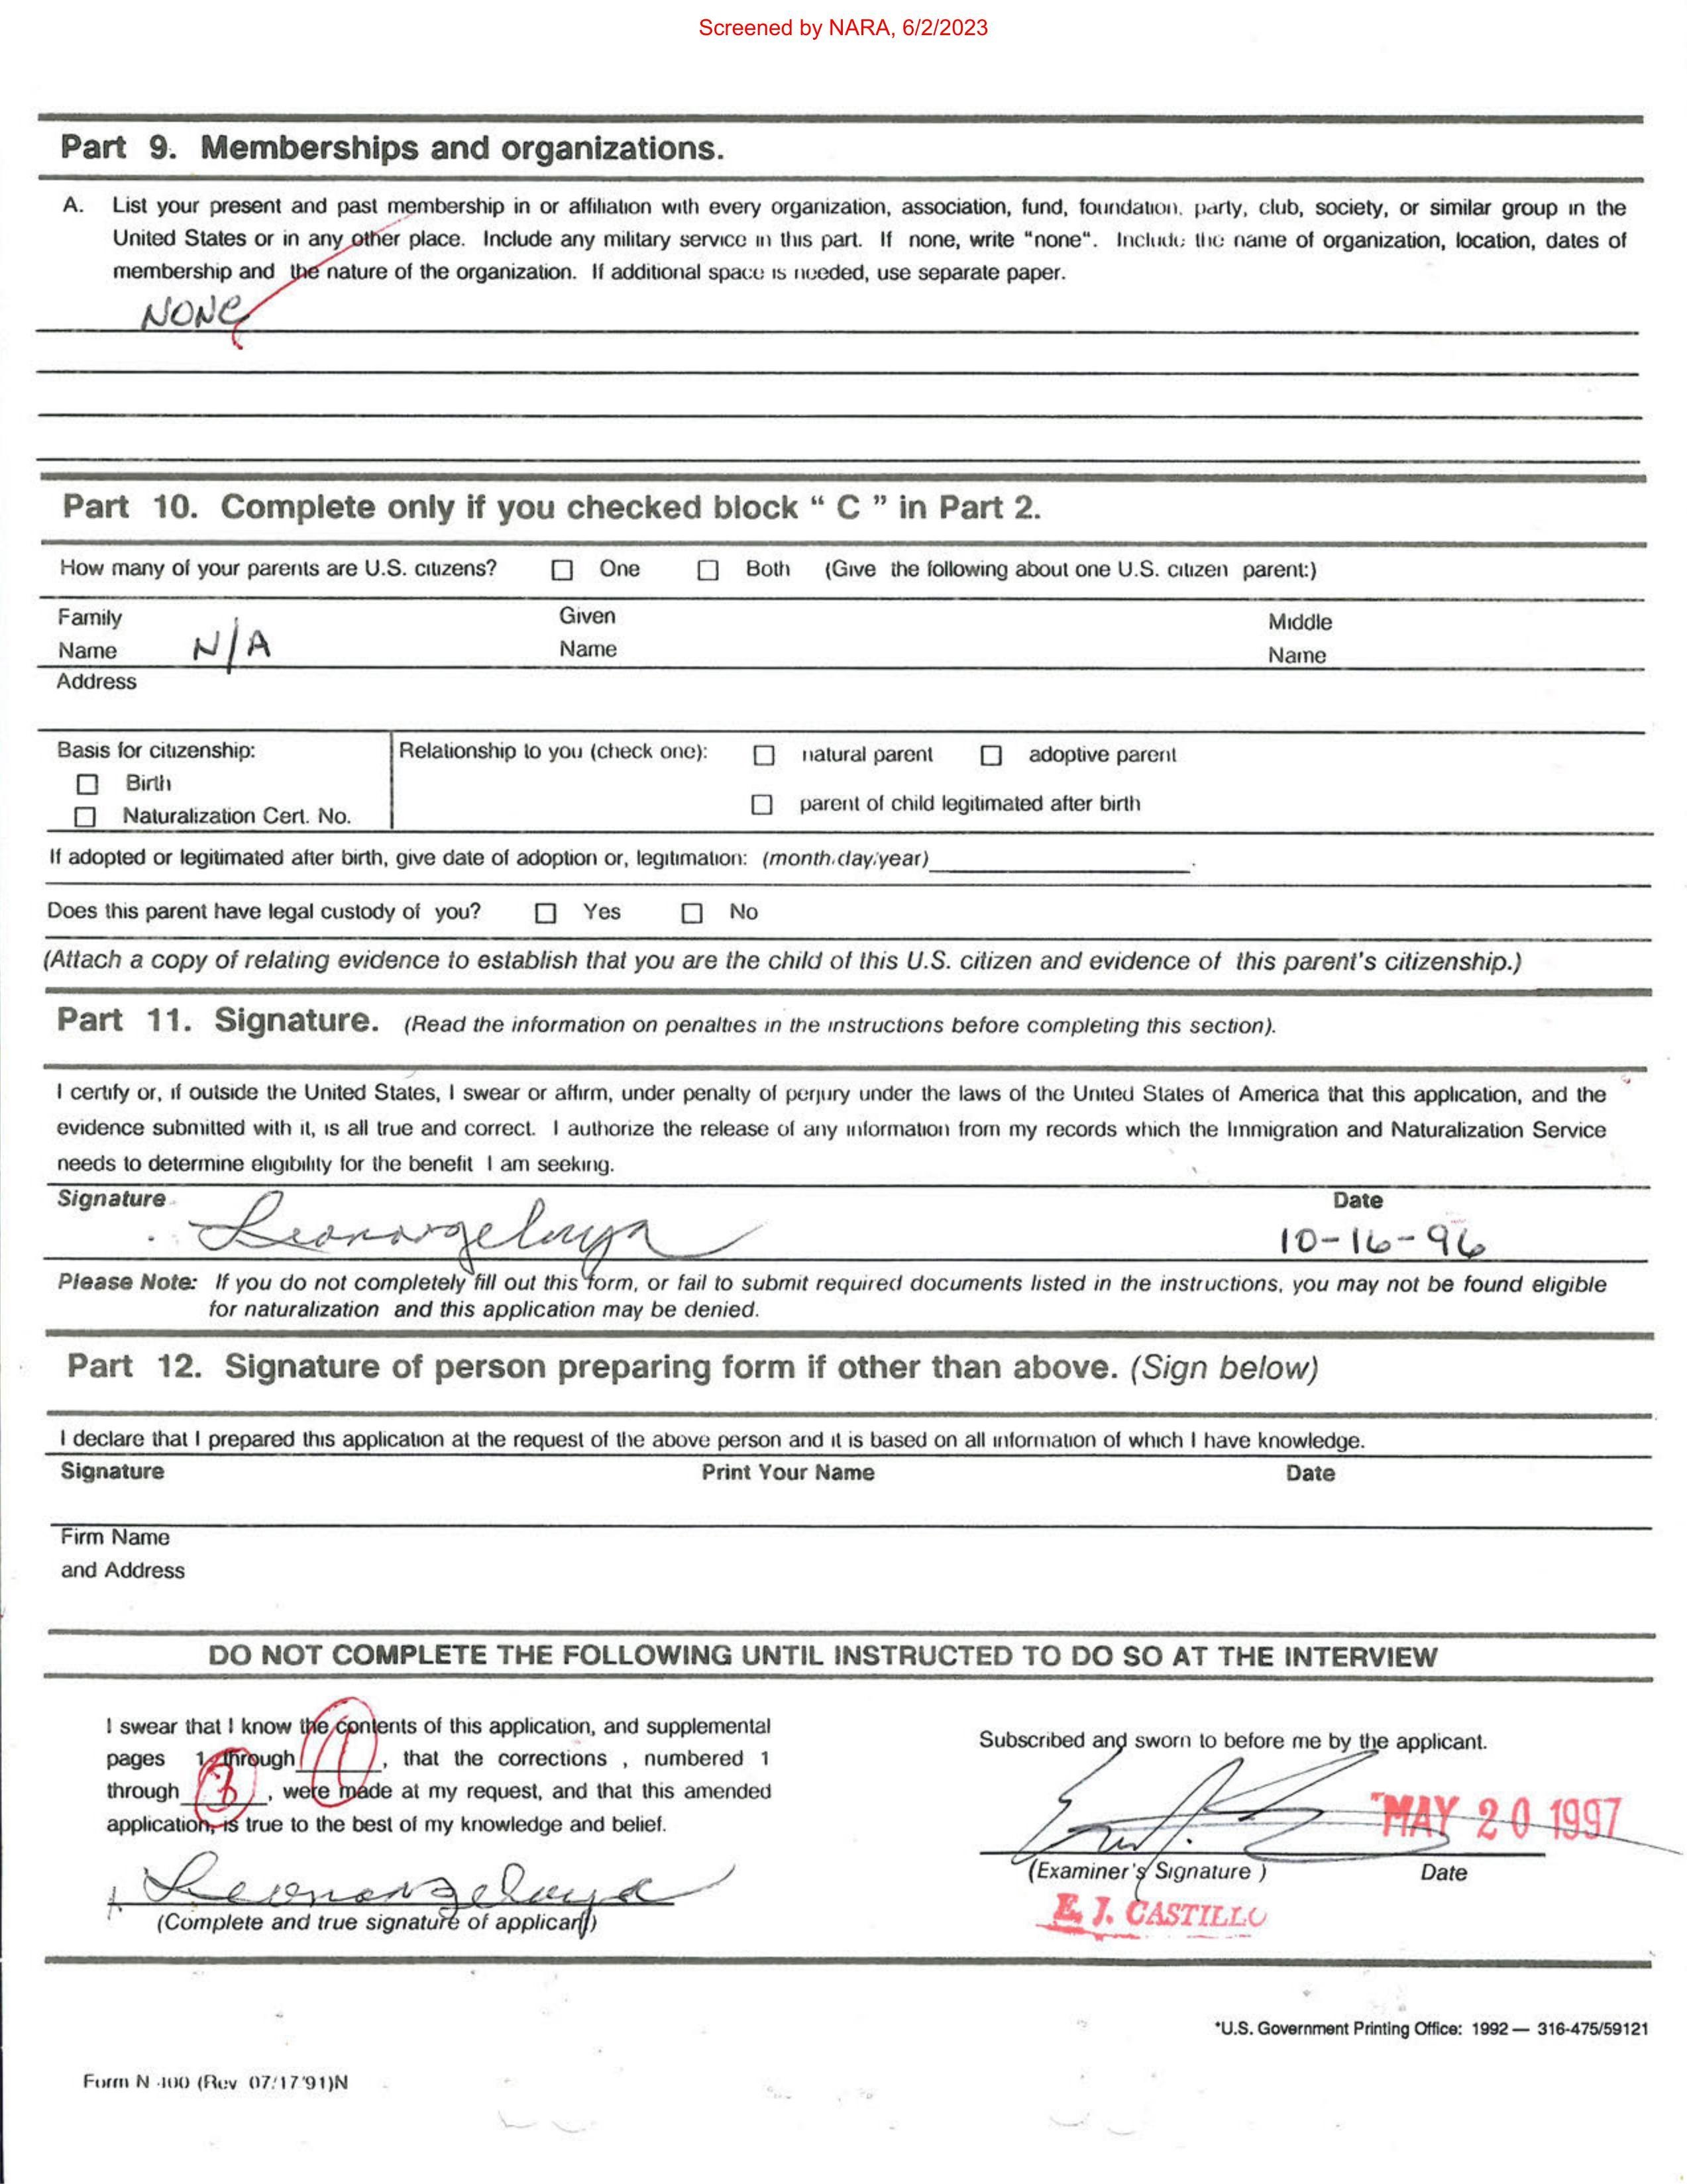 Screened by NARA, 6/2/2023
Part 9. Memberships and organizations.
A. List your present and past membership in or affiliation with every organization, association, fund, foundation, party, club, society, or similar group in the
United States or in any other place. Include any military service in this part. If none, write "none". Include the name of organization, location, dates of
membership and the nature of the organization. If additional space is needed, use separate paper.
NONE
Part 10. Complete only if you checked block " C " in Part 2.
How many of your parents are U.S. citizens? ☐ One ☐ Both (Give the following about one U.S. citizen parent:)
Family Name N/A Given Name Middle Name
Address
Basis for citizenship: Relationship to you (check one): ☐ natural parent ☐ adoptive parent
☐ Birth
☐ parent of child legitimated after birth
☐ Naturalization Cert. No.
If adopted or legitimated after birth, give date of adoption or, legitimation: (month/day/year)
Does this parent have legal custody of you? ☐ Yes ☐ No
(Attach a copy of relating evidence to establish that you are the child of this U.S. citizen and evidence of this parent's citizenship.)
Part 11. Signature. (Read the information on penalties in the instructions before completing this section).
I certify or, if outside the United States, I swear or affirm, under penalty of perjury under the laws of the United States of America that this application, and the
evidence submitted with it, is all true and correct. I authorize the release of any information from my records which the Immigration and Naturalization Service
needs to determine eligibility for the benefit I am seeking.
Signature Date
10-16-96
Please Note: If you do not completely fill out this form, or fail to submit required documents listed in the instructions, you may not be found eligible
for naturalization and this application may be denied.
Part 12. Signature of person preparing form if other than above. (Sign below)
I declare that I prepared this application at the request of the above person and it is based on all information of which I have knowledge.
Signature Print Your Name Date
Firm Name
and Address
DO NOT COMPLETE THE FOLLOWING UNTIL INSTRUCTED TO DO SO AT THE INTERVIEW
I swear that I know the contents of this application, and supplemental
pages 1 through , that the corrections , numbered 1
through , were made at my request, and that this amended
application, is true to the best of my knowledge and belief.
(Complete and true signature of applicant)
Subscribed and sworn to before me by the applicant.
MAY 20 1997
(Examiner's Signature ) Date
E. J. CASTILLO
*U.S. Government Printing Office: 1992 — 316-475/59121
Form N-400 (Rev 07/17/91)N